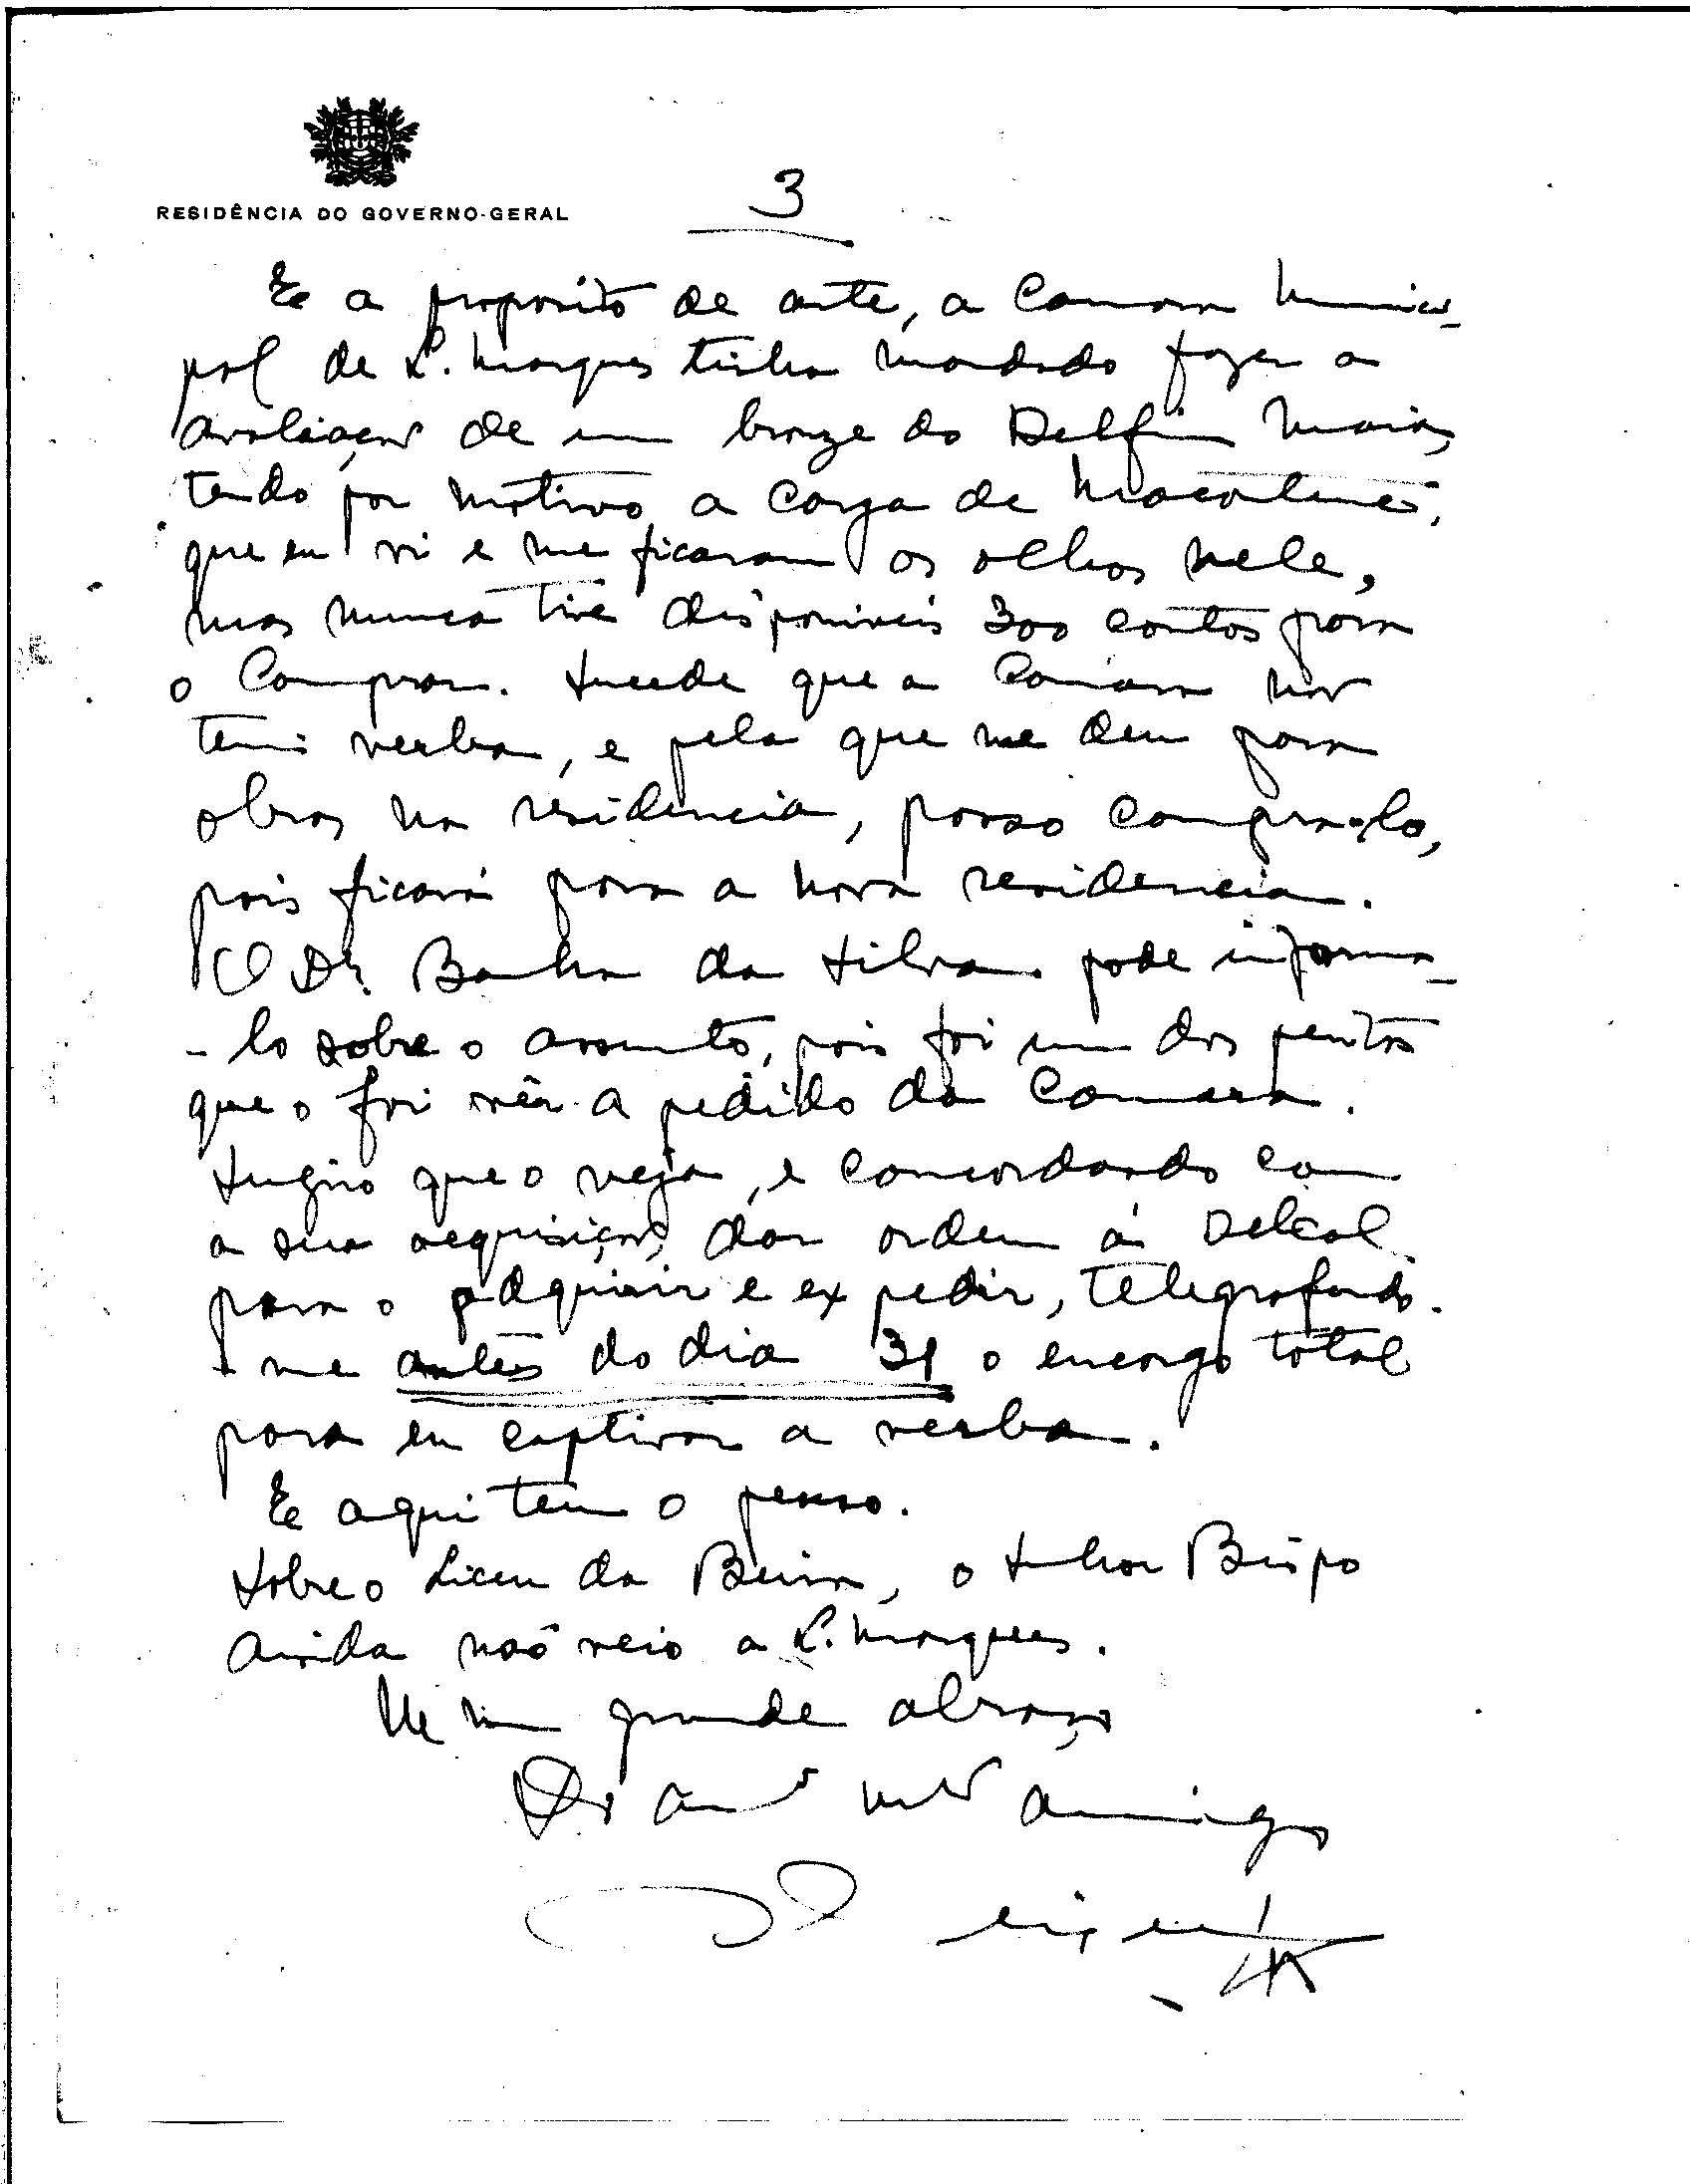 RESIDÊNCIA DO GOVERNO-GERAL
3
E a proposito de arte, a Camara Munici-
pal de L. Marques tinha mandado fazer a
avaliação de um bronze do Delfim Maia,
tendo por motivo a carga de Macontene,
que eu vi e me ficaram os olhos nele,
mas nunca tive disponiveis 300 contos para
o comprar. Sucede que a Camara não
tem verba, e pela que me deu para
obras na residencia, posso compra-lo,
pois ficará para a nova residencia.
O Dr. Banha da Silva pode informa-
-lo sobre o assunto, pois foi um dos peritos
que o foi vêr a pedido da Camara.
Sugiro que o veja, e concordando com
a sua aquisição, dar ordem á Delcal
para o adquirir e expedir, telegrafando-
-me antes do dia 31 o encargo total
para eu captivar a verba.
E aqui tem o penso.
Sobre o Liceu da Beira, o Senhor Bispo
ainda não veio a L. Marques.
Um grande abraço
Do am.º m.to amigo